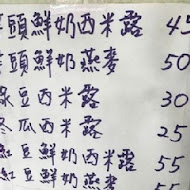 頭鮮奶西米露 45
頭鮮奶燕麥 50
綠豆西米露 30
冬瓜西米露 25
紅豆鮮奶西米露 55
紅豆鮮奶燕麥